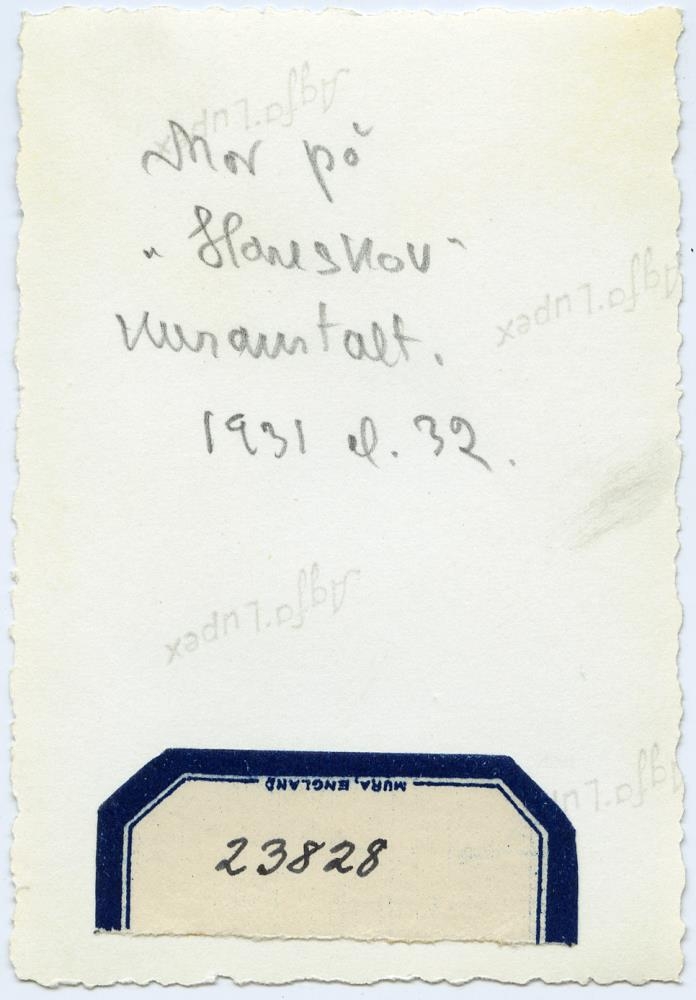 Agfa.Lupex
Mor på
"Hareskov"
Kuranstalt.
Agfa.Lupex
1931 el. 32.
Agfa.Lupex
Agfa.Lupex
MURA, ENGLAND
23828